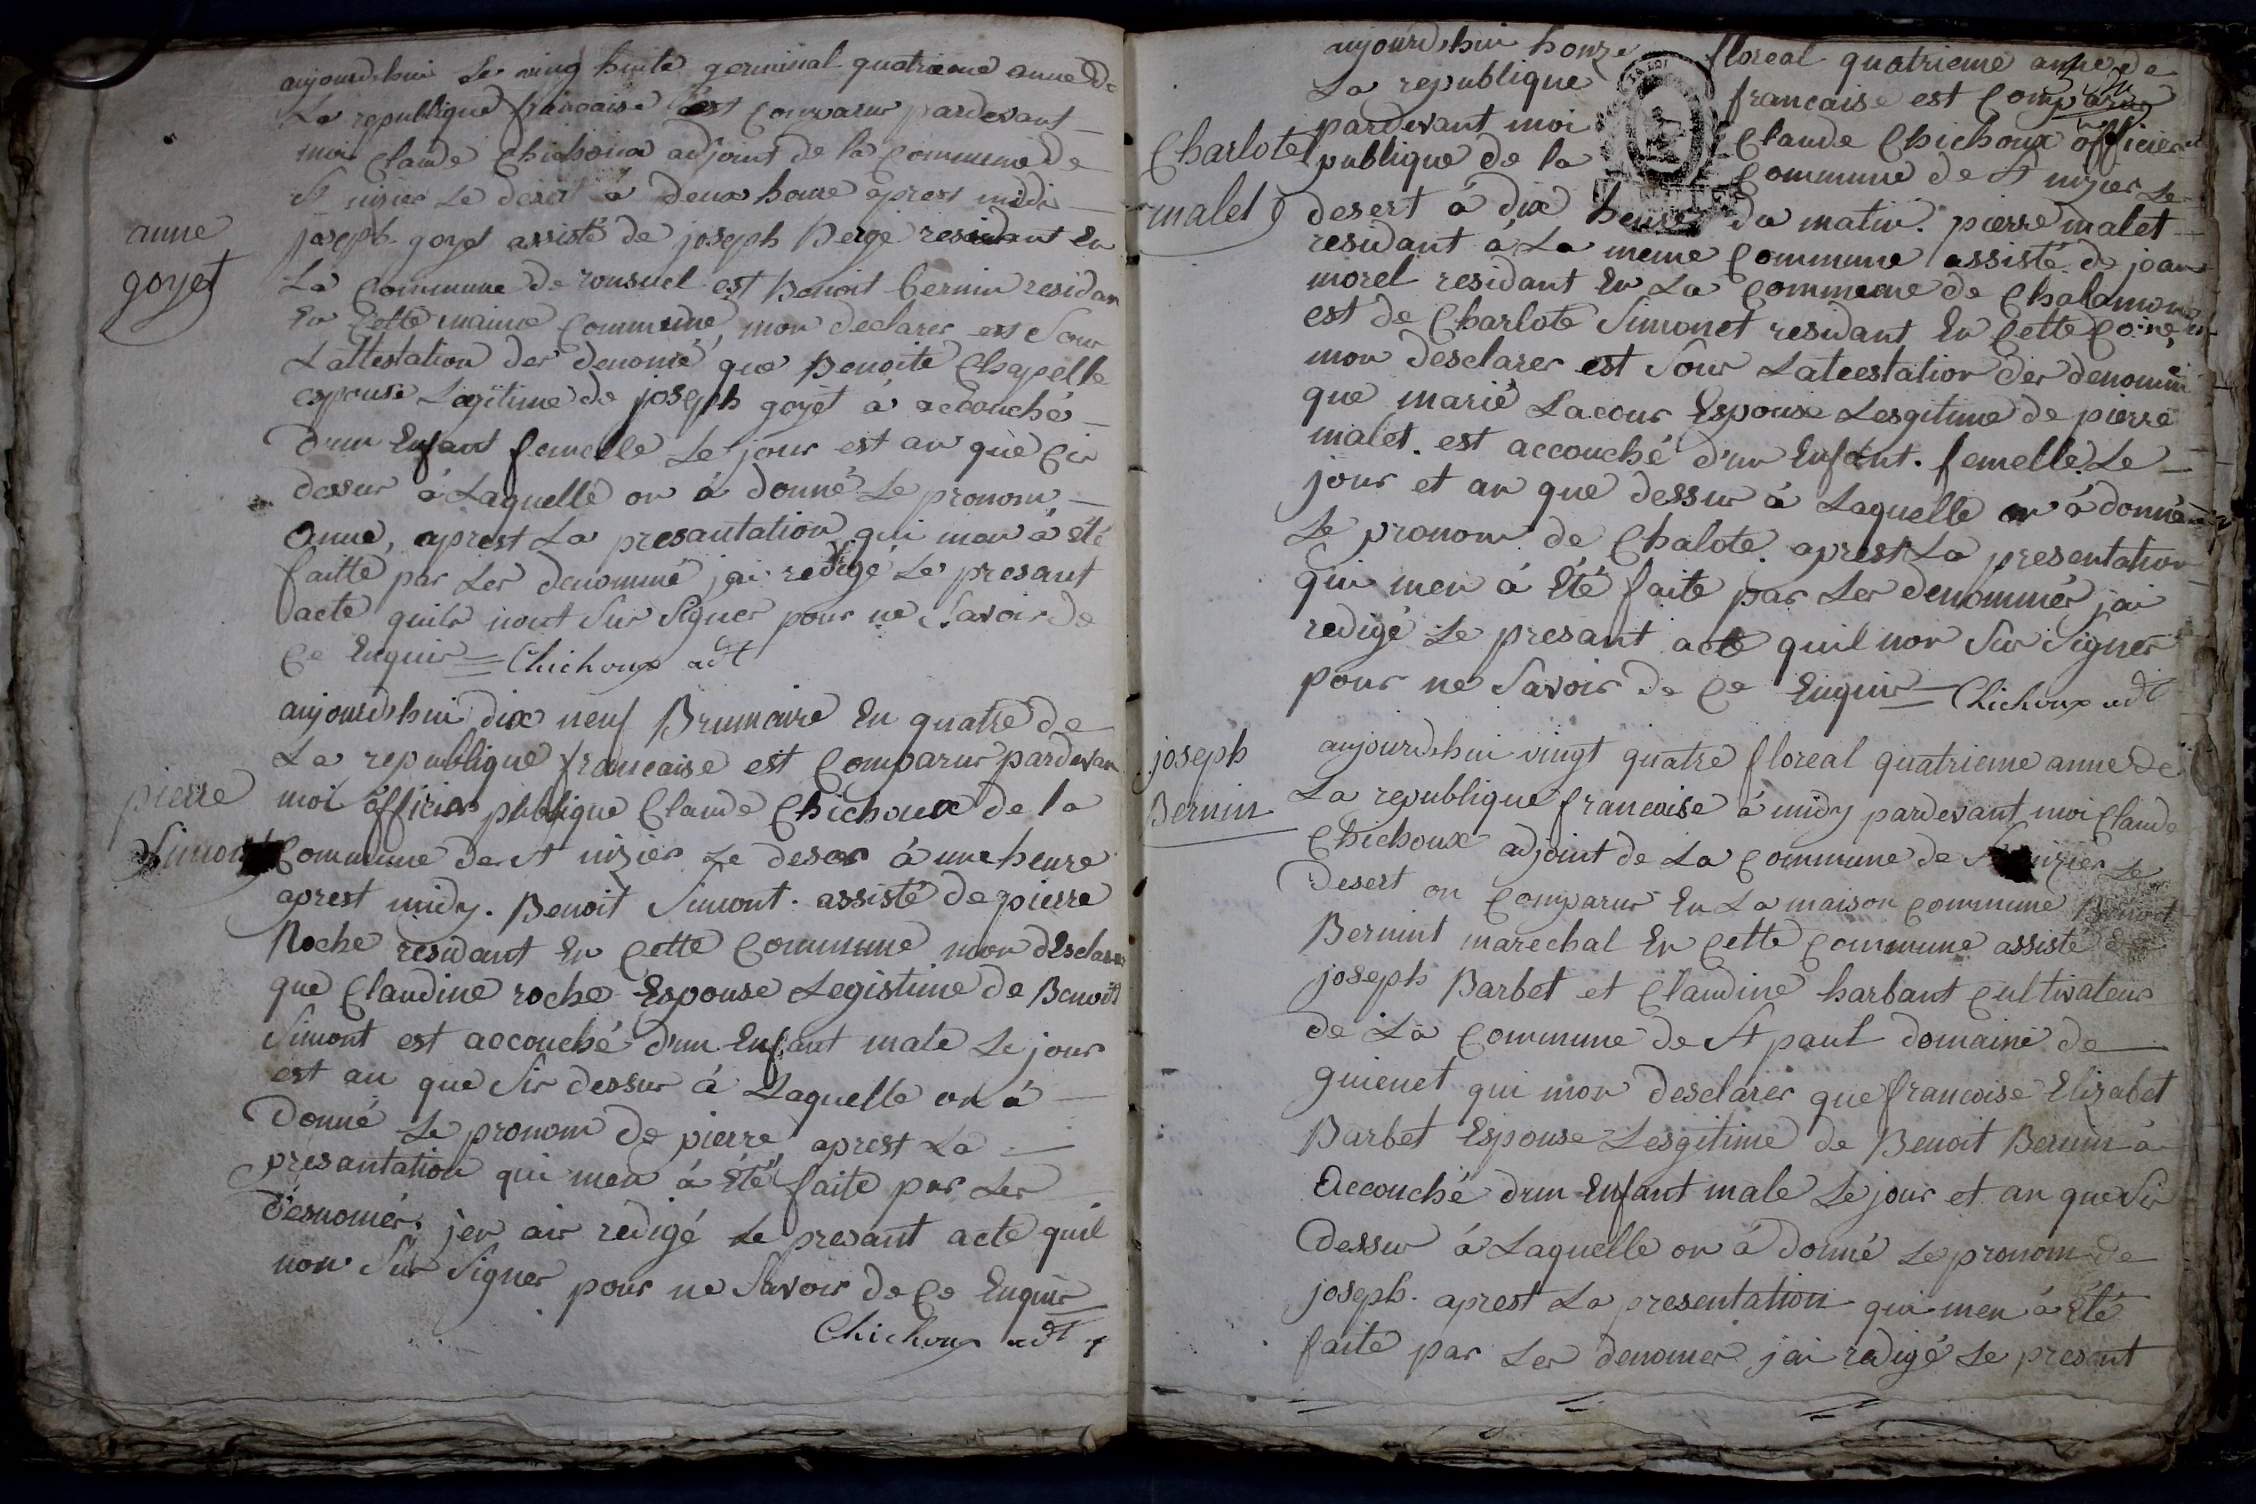 aujourdshui Le ving huite germinal quatrieme anneé de
La republique francaise est Comparus pardevant
moi Claude Chichoux adjoint de la Commune de
St nizier Le desert á deux heure aprest midi
anne
goyet
joseph goyet assisté de joseph Bergé residant En
La Commune de ronsuel est Benoit bernin residan
En Cette maime Commune, mon declarer est Sour
Lattestation der denomé que Benoite Chapelle
espouse Legitime de joseph goyet á accouché
d'un Enfant femelle Le jour est an que Cir
dessur á Laquelle on á donné Le pronom
anne, aprest La presantation qui men á été
faitte par Ler denommé jai redigé Le presant
acte quils nont Sur Signer pour ne Savoir de
Ce Enquir = Chichoux adt
aujourdshui dix neuf Brumaire En quatre de
La republique francaise est Comparus pardevan
pierre
Simont
moi officier publique Claude Chichoux de la
Commune de St nizier Le deser á une heure
aprest midy. Benoit Simont. assisté de pierre
Roche residant En Cette Commune mon desclarer
que Claudine roche Espouse Legistime de Benoit
Simont est accouché d'un Enfant male Le jour
est an que Sir dessur á Laquelle on á
Donné Le pronom de pierre aprest La
presantation qui men á été faite par Ler
désnomér, jen air redigé Le presant acte quil
non Sur Signer pour ne Savoir de Ce Enquir
Chichoux adt
aujourdshui honze floreal quatrieme anneé de
La republique francaise est Comparus
Charlote
malet
pardevant moi Claude Chichoux officier
publique de la Commune de St nizier Le
desert á dix heures du matin. pierre malet
residant á La meme Commune assisté de jean
morel residant En La Commune de Chalamon
est de Charlote Simonet residant En Cette Co:ne
mon desclarer est Sour Lateestation der denommé
que marie Lacour Espouse Lesgitime de pierre
malet. est accouché d'un Enfant. femelle. Le
jour et an que dessur á Laquelle on á donné
Le pronom de Chalote. aprest La presentation
qui men á été faite par Ler denommér jai
redigé Le presant acte quil non Sur Signer
pour ne Savoir de Ce Enquir = Chichoux adt
joseph
Bernin
aujourdshui vingt quatre floreal quatrieme anneé de
La republique francaise á midy pardevant moi Claude
Chichoux adjoint de La Commune de St nizier Le
Desert on Comparur En La maison Commune Benoit
Bernint marechal En Cette Commune assisté de
joseph Barbet et Claudine harbant Cultivateur
de La Commune de St paul domaine de
guienet qui mon desclarer que francoise Elizabet
Barbet Espouse Lesgitime de Benoit Bernin á
accouché d'un Enfant male Le jour et an que Sir
dessur á Laquelle on á donné Le pronom de
joseph. aprest La presentation qui men á été
faite par Ler denomer jai redigé Le presant